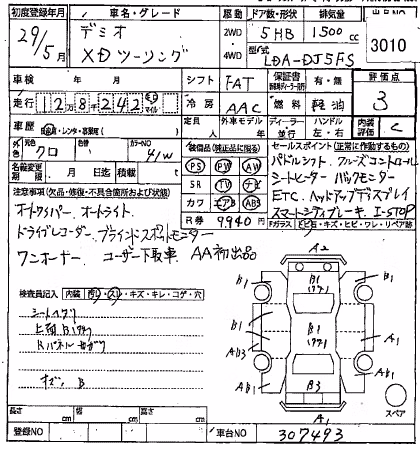 初度登録年月 車名・グレード 駆動 ドア数・形状 排気量
29/5月 デミオ 2WD 5HB 1500cc 3010
XDツーリング 4WD 型式 LDA-DJ5FS
車検 年 月 シフト FAT 保証書 有・無 評価点
走行 12万8242 km マイル 冷房 AAC 燃料 軽油 3
車歴 自家用・レンタ・事業用( ) 定員 人 外車モデル 年 ディーラー 並行 ハンドル 左・右 内装評価 C
外色 クロ カラーNO 41W 装備品(純正品に限る) セールスポイント(正常に作動するもの)
名義変更期限 月 日迄 積載量 t PS PW AW パドルシフト クルーズコントロール
SR TV ナビ シートヒーター バックモニター
注意事項(欠品・修復・不具合箇所および状態) カワ エアB ABS ETC ヘッドアップディスプレイ
オートワイパー オートライト R券 9940円 スマートシティブレーキ i-STOP
ドライブレコーダー ブラインドスポットモニター Fガラス ヒビ・キズ・ヒビ・ワレ・リペア跡
ワンオーナー ユーザー下取車 AA初出品
A2
検査員記入 内装 ・スレ・キズ・キレ・コゲ・穴
B1 B1 B1
A1 B1 A1
AB3 A1
AB1 B3 AB1
A1
スペア
長さ cm 幅 cm 高さ cm
登録NO 車台NO 307493